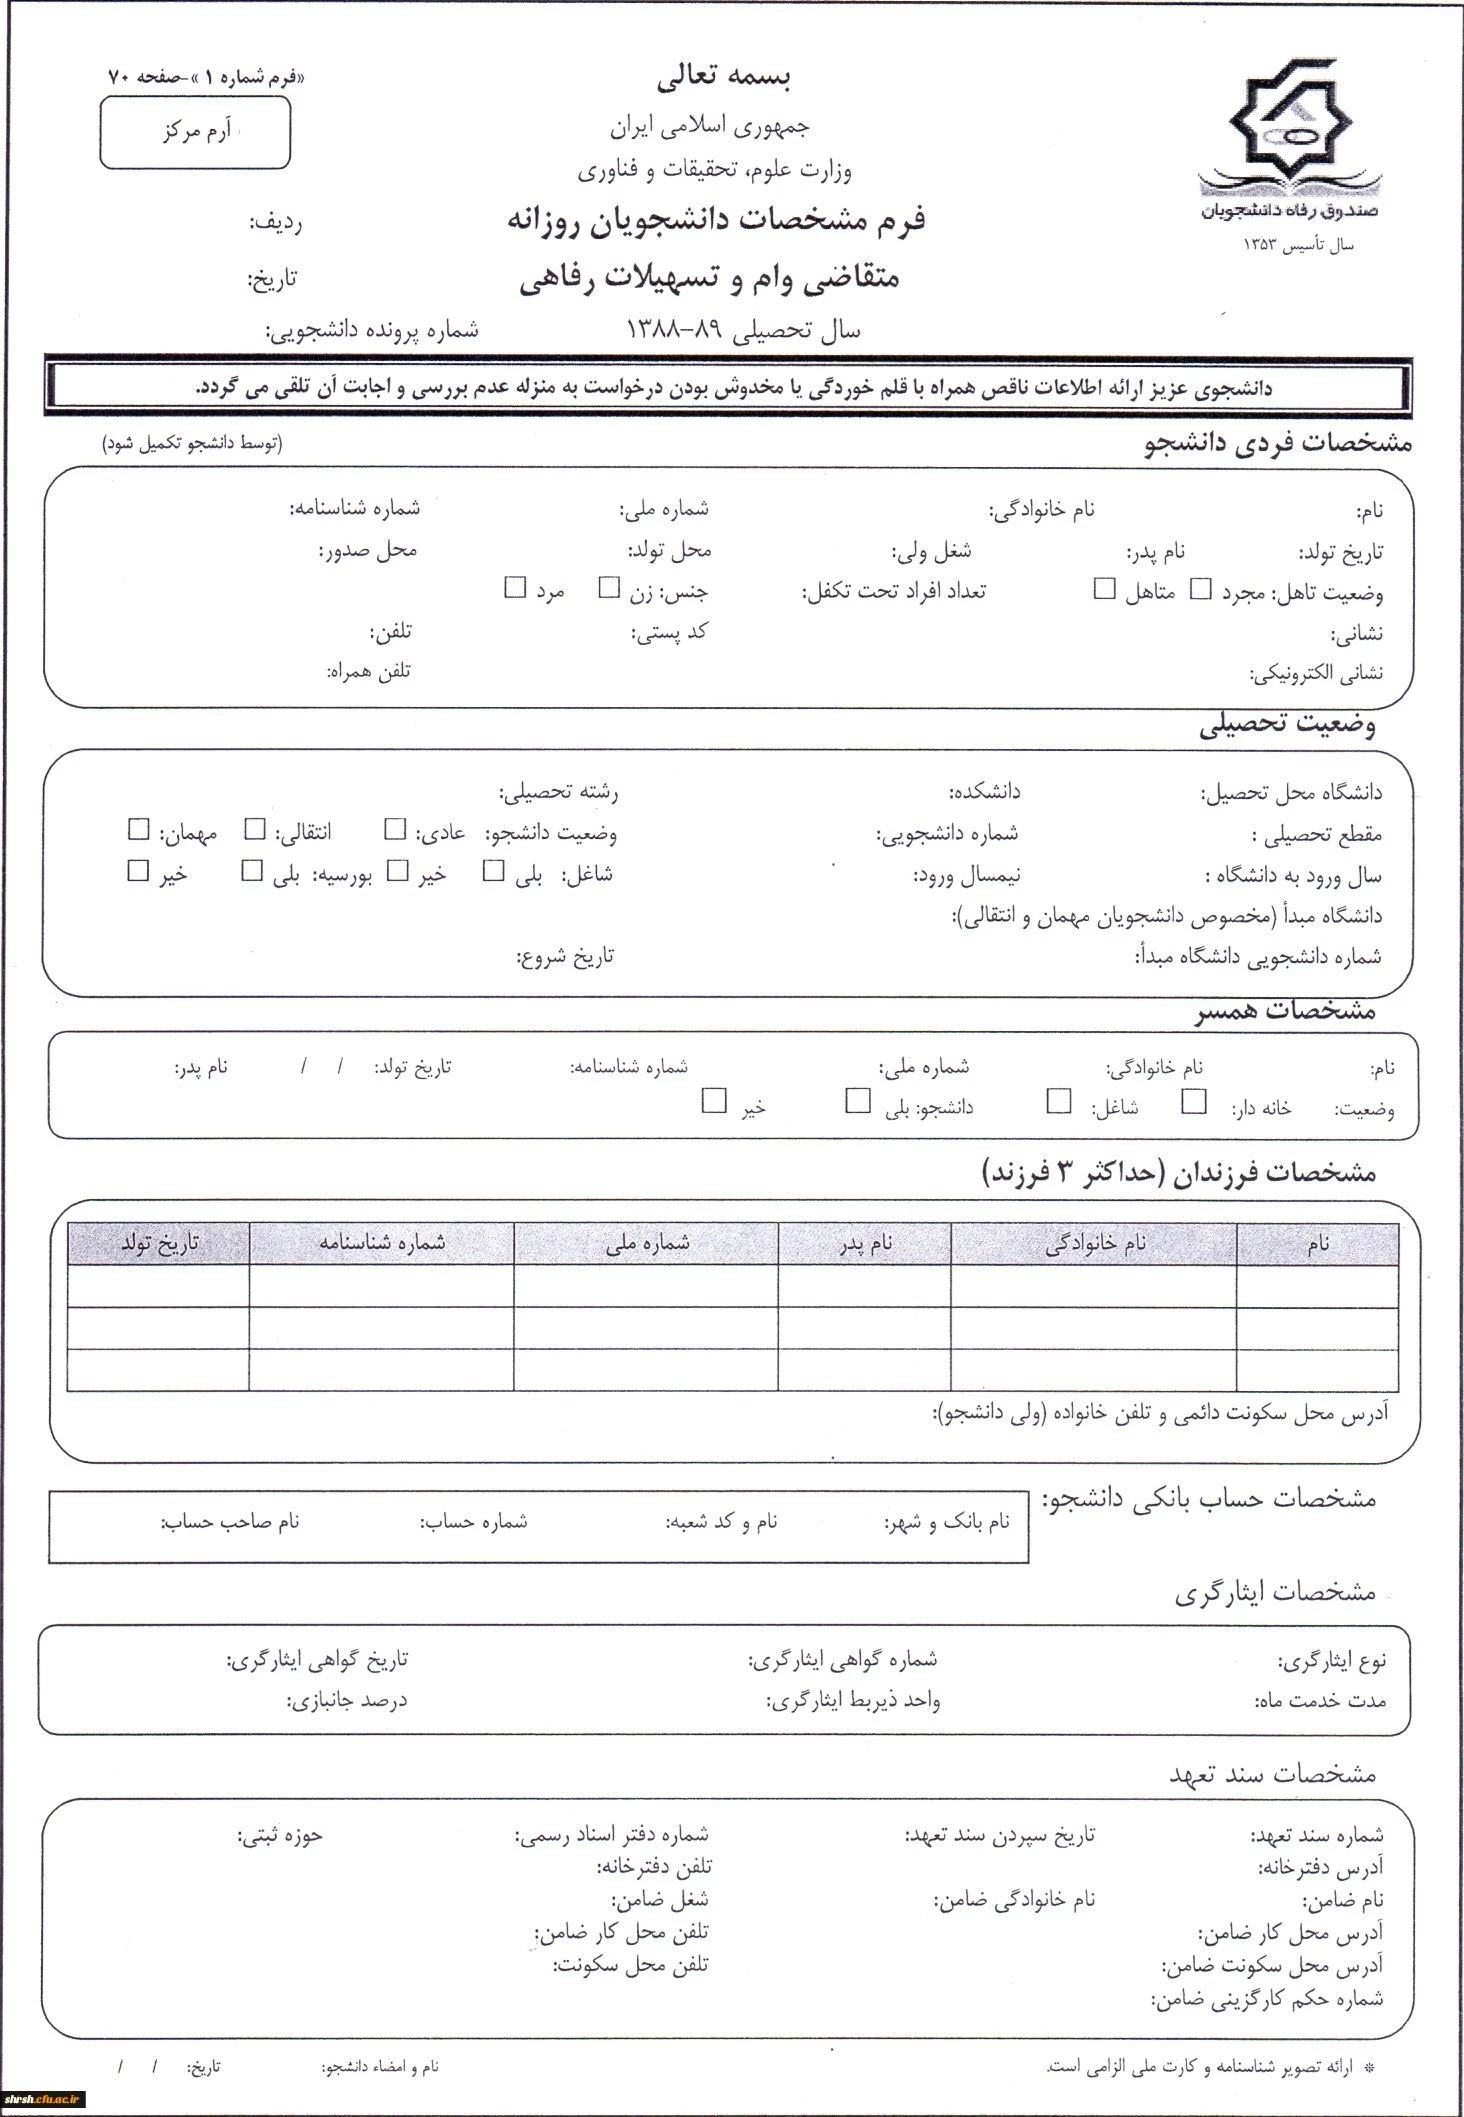 «فرم شماره ۱»-صفحه ۷۰
آرم مرکز
بسمه تعالی
جمهوری اسلامی ایران
وزارت علوم، تحقیقات و فناوری
فرم مشخصات دانشجویان روزانه
متقاضی وام و تسهیلات رفاهی
سال تحصیلی ۸۹-۱۳۸۸
صندوق رفاه دانشجویان
سال تأسیس ۱۳۵۳
ردیف:
تاریخ:
شماره پرونده دانشجویی:
دانشجوی عزیز ارائه اطلاعات ناقص همراه با قلم خوردگی یا مخدوش بودن درخواست به منزله عدم بررسی و اجابت آن تلقی می گردد.
مشخصات فردی دانشجو (توسط دانشجو تکمیل شود)
نام: نام خانوادگی: شماره ملی: شماره شناسنامه:
تاریخ تولد: نام پدر: شغل ولی: محل تولد: محل صدور:
وضعیت تاهل: مجرد □ متاهل □ تعداد افراد تحت تکفل: جنس: زن □ مرد □
نشانی: کد پستی: تلفن:
نشانی الکترونیکی: تلفن همراه:
وضعیت تحصیلی
دانشگاه محل تحصیل: دانشکده: رشته تحصیلی:
مقطع تحصیلی : شماره دانشجویی: وضعیت دانشجو: عادی: □ انتقالی: □ مهمان: □
سال ورود به دانشگاه : نیمسال ورود: شاغل: بلی □ خیر □ بورسیه: بلی □ خیر □
دانشگاه مبدأ (مخصوص دانشجویان مهمان و انتقالی):
شماره دانشجویی دانشگاه مبدأ: تاریخ شروع:
مشخصات همسر
نام: نام خانوادگی: شماره ملی: شماره شناسنامه: تاریخ تولد: / / نام پدر:
وضعیت: خانه دار: □ شاغل: □ دانشجو: بلی □ خیر □
مشخصات فرزندان (حداکثر ۳ فرزند)
نام نام خانوادگی نام پدر شماره ملی شماره شناسنامه تاریخ تولد
آدرس محل سکونت دائمی و تلفن خانواده (ولی دانشجو):
مشخصات حساب بانکی دانشجو:
نام بانک و شهر: نام و کد شعبه: شماره حساب: نام صاحب حساب:
مشخصات ایثارگری
نوع ایثارگری: شماره گواهی ایثارگری: تاریخ گواهی ایثارگری:
مدت خدمت ماه: واحد ذیربط ایثارگری: درصد جانبازی:
مشخصات سند تعهد
شماره سند تعهد: تاریخ سپردن سند تعهد: شماره دفتر اسناد رسمی: حوزه ثبتی:
آدرس دفترخانه: تلفن دفترخانه:
نام ضامن: نام خانوادگی ضامن: شغل ضامن:
آدرس محل کار ضامن: تلفن محل کار ضامن:
آدرس محل سکونت ضامن: تلفن محل سکونت:
شماره حکم کارگزینی ضامن:
* ارائه تصویر شناسنامه و کارت ملی الزامی است. نام و امضاء دانشجو: تاریخ: / /
shrsh.cfu.ac.ir